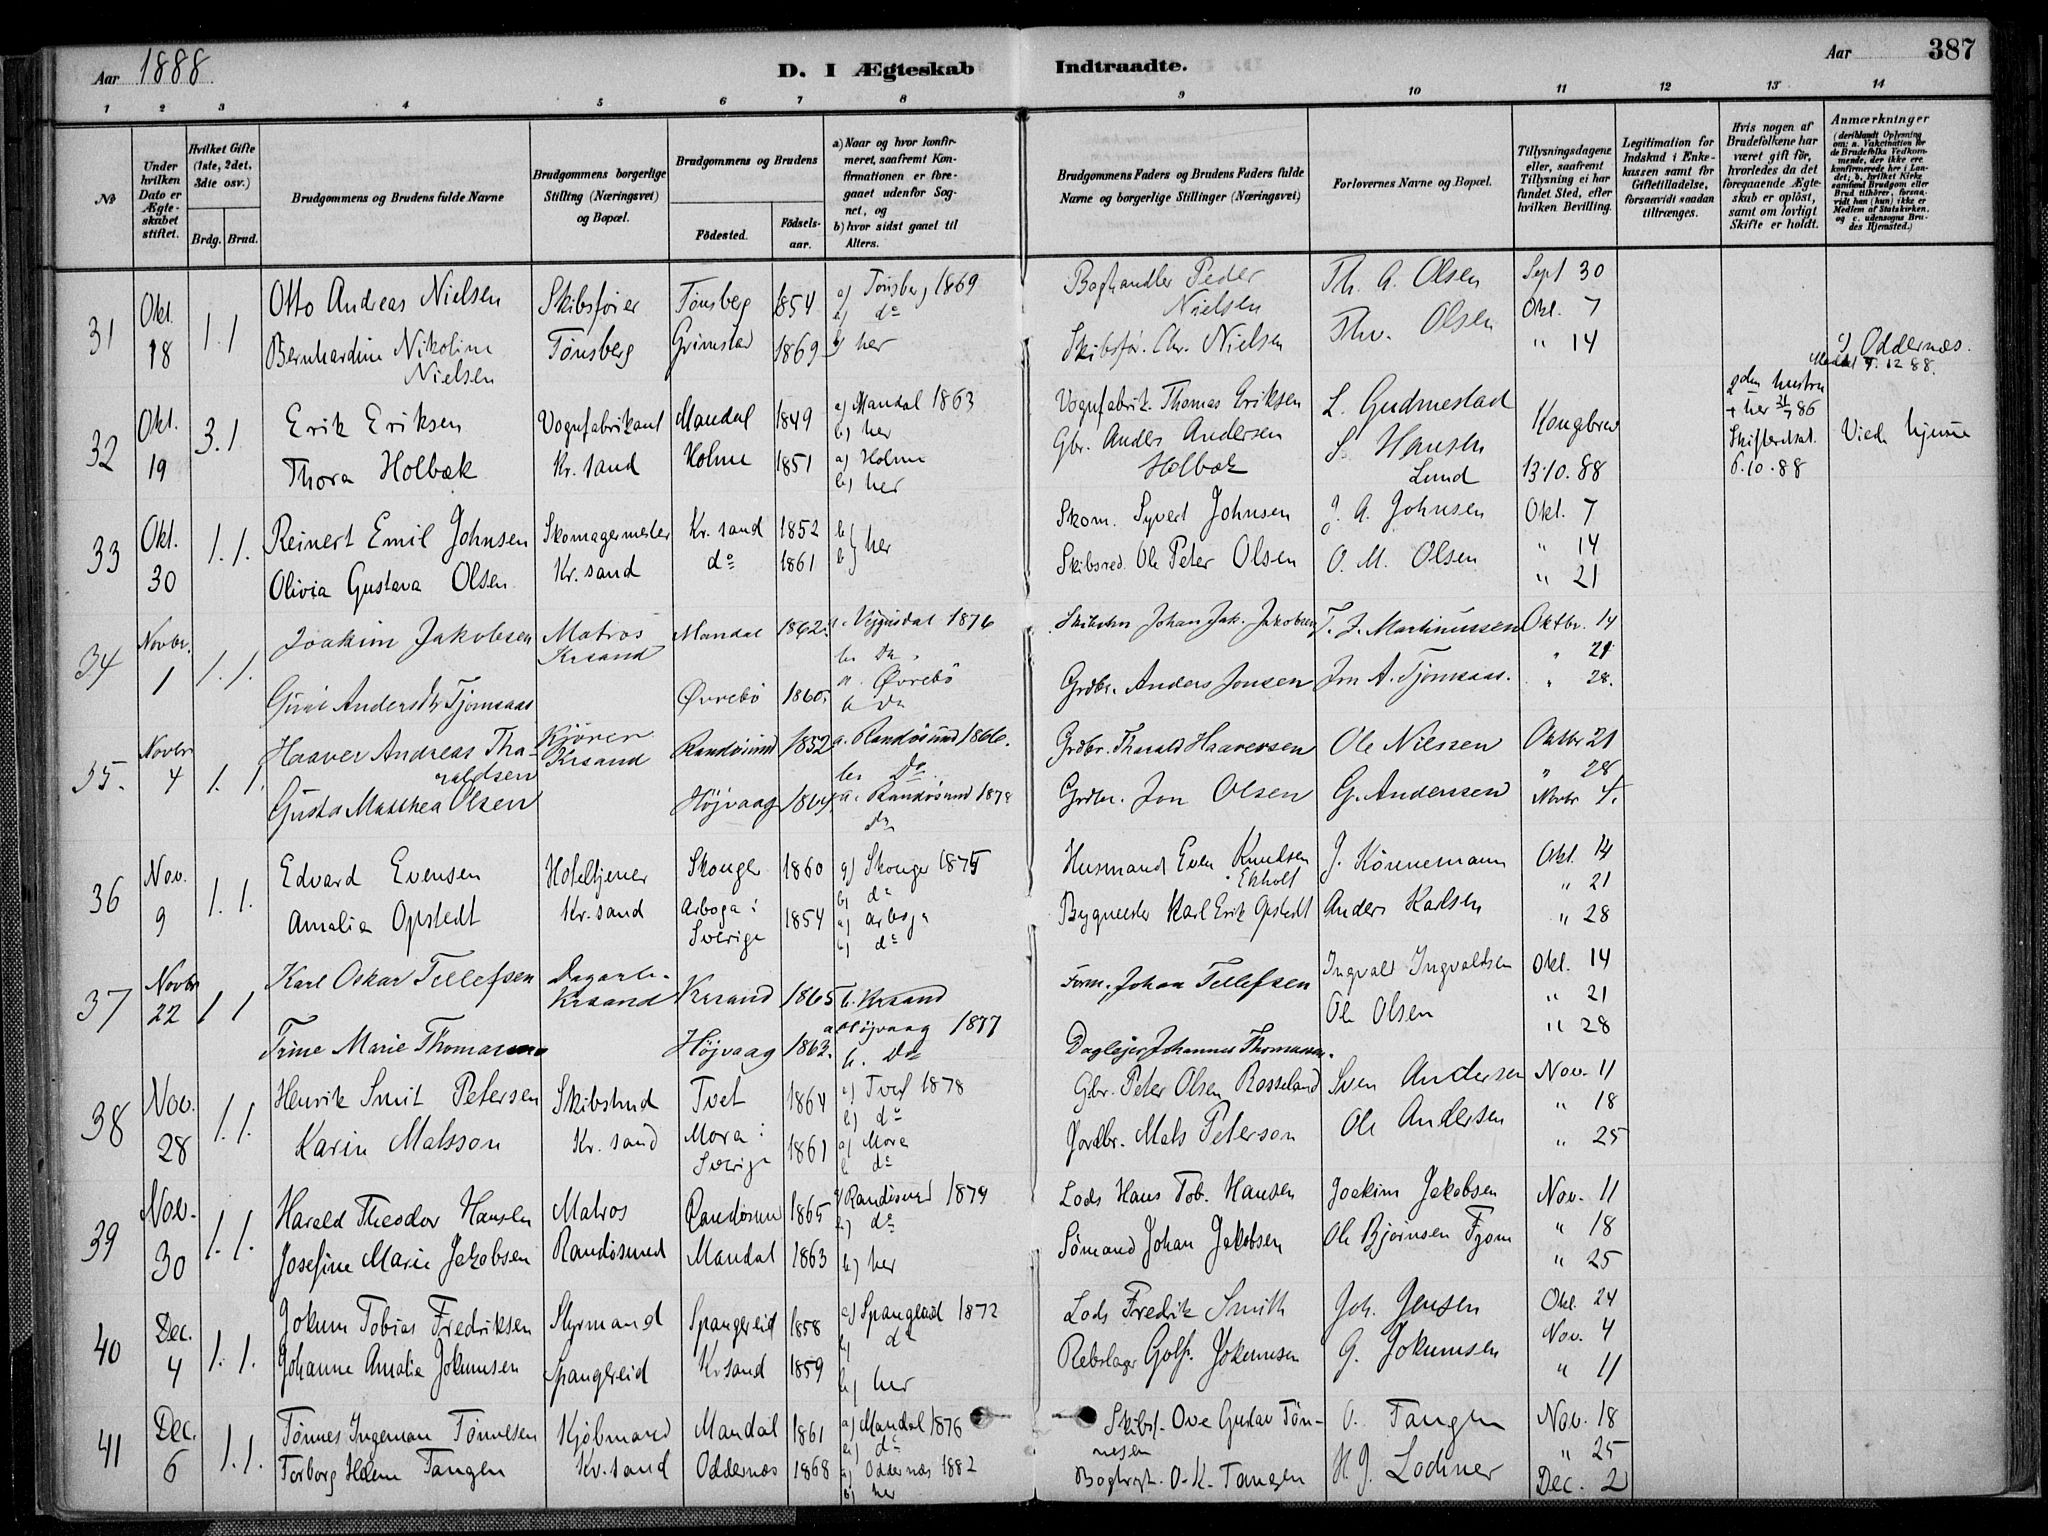 Aar 1888. D. I Ægteskab Indtraadte. Aar 387
1 2 3 4 5 6 7 8 9 10 11 12 13 14
№
Under hvilken Dato er Ægteskabet stiftet.
Hvilket Gifte (1ste, 2det, 3die osv.)
Brdg. Brud.
Brudgommens og Brudens fulde Navne
Brudgommens borgerlige Stilling (Næringsvei) og Bopæl.
Brudgommens og Brudens
Fødested. Fødselsaar.
a) Naar og hvor konfirmeret, saafremt Konfirmationen er foregaaet udenfor Sognet, og
b) hvor sidst gaaet til Alters.
Brudgommens Faders og Brudens Faders fulde Navne og borgerlige Stillinger (Næringsvei)
Forlovernes Navne og Bopæl.
Tillysningsdagene eller, saafremt Tillysning ei har fundet Sted, efter hvilken Bevilling.
Legitimation for Indskud i Enkekassen samt for Giftetilladelse, forsaavidt saadan tiltrænges.
Hvis nogen af Brudefolkene har været gift før, hvorledes da det foregaaende Ægteskab er opløst, samt om lovligt Skifte er holdt.
Anmærkninger (deriblandt Oplysning om: a. Vakcination for de Brudefolks Vedkommende, der ikke ere konfirmerede her i Landet; b. hvilket Kirkesamfund Brudgom eller Brud tilhører, forsaavidt han (hun) ikke er Medlem af Statskirken, og c. udensogns Brudes Hjemsted.)
31 Okt. 18 1. 1
Otto Andreas Nielsen Skibsfører Tønsberg 1854 a) Tønsberg 1869 b) do Boghandler Peder Nielsen Th. A. Olsen Sept 30
Bernhardine Nikoline Nielsen Tønsberg Grimstad 1869 b) her Skibsfør. Chr. Nielsen Thv. Olsen Okt. 7 " 14 c) Oddernæs.
32 Okt. 19 3. 1.
Erik Eriksen Vognfabrikant Mandal 1849 a) Mandal 1863 b) her Vognfabrik. Thomas Eriksen L. Gudmestad Kongebrev 2den hustru + her 31/7 86
Thora Holbæk Kr. sand Holme 1851 a) Holme b) her Gbr. Anders Andersen Holbæk S. Hansen Lund 13.10.88 6.10.88 Viede hjemme
33 Okt. 30 1. 1.
Reinert Emil Johnsen Skomagermester Kr. sand 1852 b) her Skom. Syvert Johnsen J. A. Johnsen Okt. 7
Olivia Gustava Olsen Kr. sand do 1861 b) Skibsred. Ole Peter Olsen O. M. Olsen " 14 " 21
34 Novbr. 1 1. 1.
Joakim Jakobsen Matros Krsand Mandal 1862. 1876 b. Do. Johan Jak. Jakobsen T. J. Martinussen Oktbr. 14
Guri Andersdtr Tjomsaas Øvrebö 1860. a. Øvrebö b. Do Grdbr. Anders Jonsen Jon A. Tjomsaas. " 21 " 28.
35. Novbr 4 1. 1.
Haaver Andreas Tharaldsen Krsand Randøsund 1832 a. Randøsund 1866. b. Do Grdbr. Tharald Haaversen Ole Nielsen Oktbr 21
Gusta Matthea Olsen Höjvaag a. Randøsund 1878 Do Grdbr. Jon Olsen G. Anderssen " 28 Novbr 4.
36 Nov. 9 1. 1.
Edvard Evensen Hoteltjener Skouger 1860 a) Skouger 1875 b) do Husmand Even Knudsen Ekholt J. Könnemann Okt. 14
Amalia Opstedt Kr. sand Arboga i Sverige 1854 a) Arboga b) do Bygmester Karl Erik Opstedt Anders Karlsen " 21 " 28
37 Novbr 22 1 1
Karl Oskar Tellefsen Dagarb. Krsand Krsand 1865 b. Krsand Form. Johan Tellefsen Ingvald Ingvaldsen Okt. 14
Trine Marie Thomassen Höjvaag 1863. a Höjvaag 1877 b. Do Daglejer Johannes Thomassen. Ole Olsen " 21 " 28
38 Nov. 28 1. 1.
Henrik Smit Petersen Skibstmd Tvet 1864 a) Tvet 1878 b) do Gbr. Peter Olsen Rosseland Sven Andersen Nov. 11
Karin Matsson Kr. sand Mora i Sverige 1861 a) Mora b do Jordbr. Mats Peterson Ole Andersen " 18 " 25
39 Nov. 30 1. 1.
Harald Theodor Hansen Matros Randøsund 1865 a) Randøsund 1879 b) do Lods Hans Tob. Hansen Joakim Jakobsen Nov. 11
Josefine Marie Jakobsen Randøsund Mandal 1863 b) her Sømand Johan Jakobsen Ole Bjørnsen " 18 " 25
40 Dec. 4 1. 1.
Jokum Tobias Fredriksen Styrmand Spangereid 1858 a) Spangereid 1872 b) do Lods Fredrik Smith Joh. Jensen Okt. 24
Johanne Amalia Jokumsen Spangereid Krsand 1859 b) her Rebslager Golf. Jokumsen G. Jokumsen Nov. 4 " 11
41 Dec. 6 1. 1.
Tønnes Ingeman Tønnesen Kjøbmand Mandal 1861 a) Mandal 1876 b) do Skibsf. Ove Gustav Tønnesen O. Tangen Nov. 18
Torborg Helene Tangen Kr. sand Oddernæs 1868 a) Oddernæs 1882 b) her O. K. Tangen H. J. Lochner " 25 Dec. 2